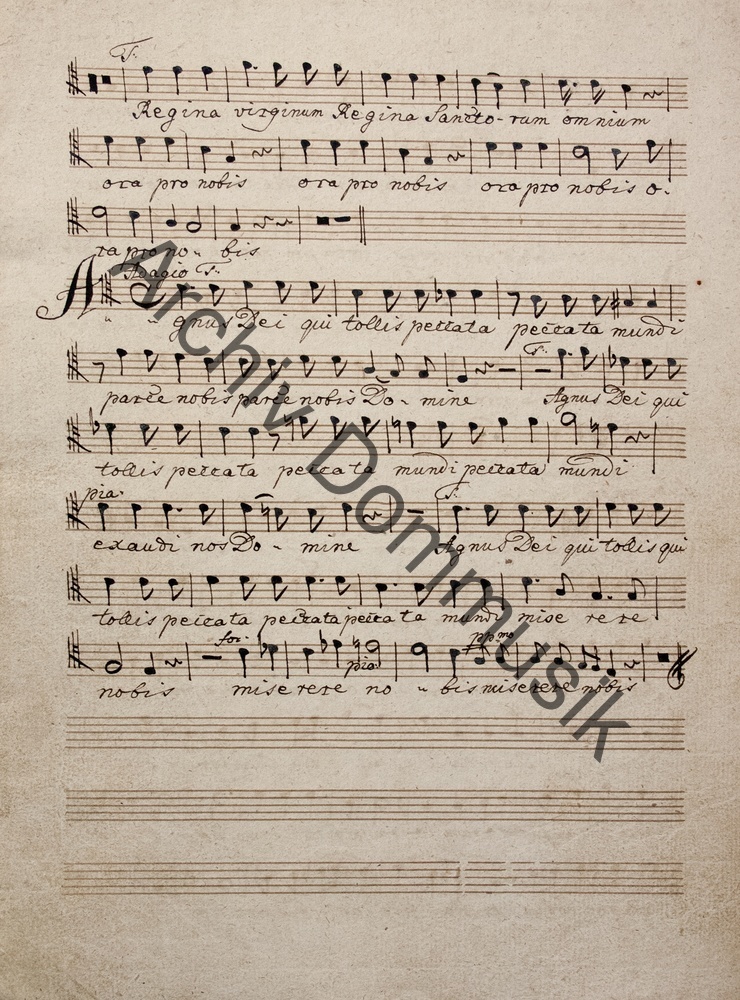 T:
Regina virginum Regina Sancto-rum omnium
ora pro nobis ora pro nobis ora pro nobis o-
ra pro no- bis
Adagio T:
A - - gnus Dei qui tollis peccata peccata mundi
T:
parce nobis parce nobis Do- mine Agnus Dei qui
tollis peccata peccata mundi peccata mundi
pia: T:
exaudi nos Do- mine Agnus Dei qui tollis qui
tollis peccata peccata peccata mundi mise rere
for: pia: ppmo
nobis miserere no - bis miserere nobis
Archiv Dommusik